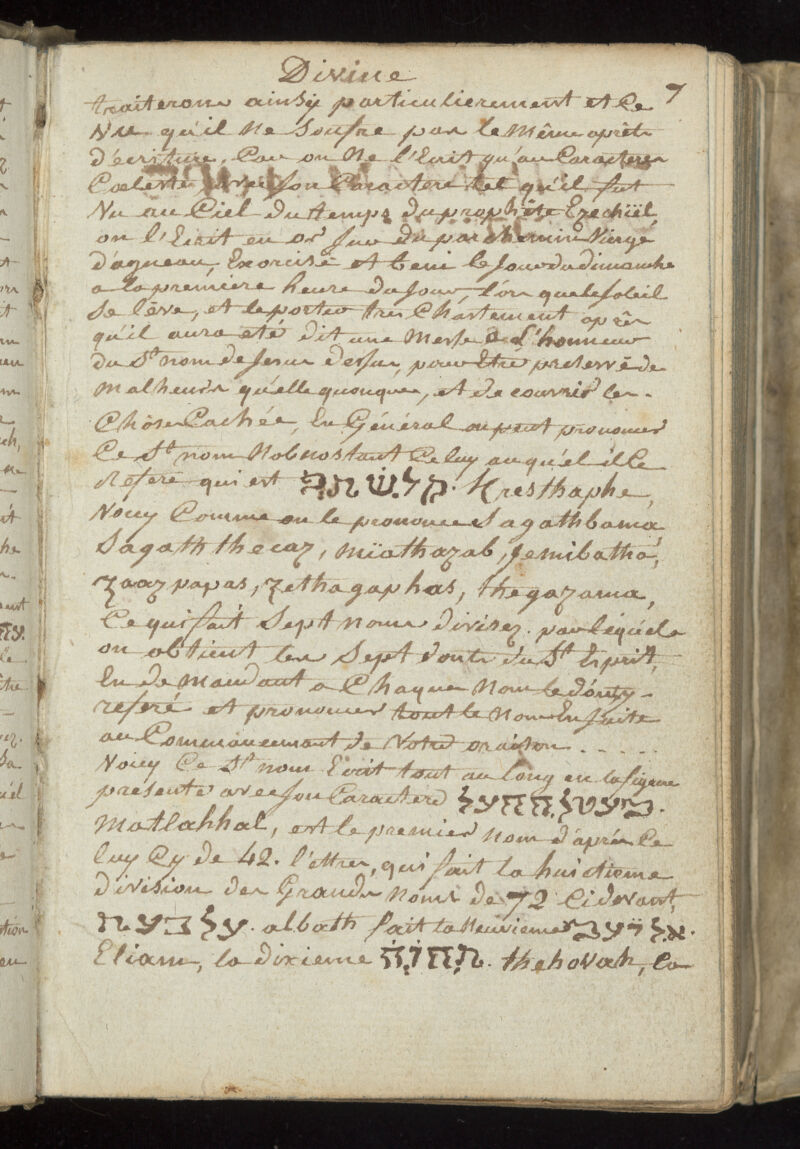 Divine
7
traiterons ainsÿ particulierement et Ce
Nu qu'il Ne Soufre pas le Même
d'écriture, Car on Ne l'Ecrit qu'au Caractere
Cœleste avec son Caractere tel qu'il fut
Vu au Ciel du temps du prophéte Ezechiël,
on l'Ecrit en or sur du parchemin Vierge
d'agneau, Exorcisé et beni le jour du dimanche
a la premiére heure du Jour, l'or que le soleil
se léve, et le porter tres Chastement aprés
qu'il aura eté dit une Messe a L'honneur
du St nom de Jesus dessus, pour Etre preservé de
Malheurs qu'elle quonques, et de couvrir les
Choses Cachée, En Général on peut prononcer
Ce St nom Nobnostant Celuy au qu'el il le
refere qui est קלשתפ. Kresthaphe,
Voicy Comme on le prononce Sagathbama
Sagath thecaz, miathazab, Jemibatha,
zaazpapas, zethagaphas, thegazama,
Ce qui fait Sept noms divisez. par léquéls
on obtient les Sept donts du St Esprit,
En demandant a Chaque Nom le don y
referé et prononcer tout le Nom Ensuite
au Commancement de Votre oraison . . . . .
Voicy Ce St nom Ecrit tout au long en la figure
présente avec son Caractere
Matlahhal, est le premier nom d'aprés Ce
luy Cy de 42. l'ettres, qui fait la huictieme
division des Grands Noms de 72 Cidevant,
albath fait la Neuvieme
Eliam, la dixieme תהוה. thehovah, la